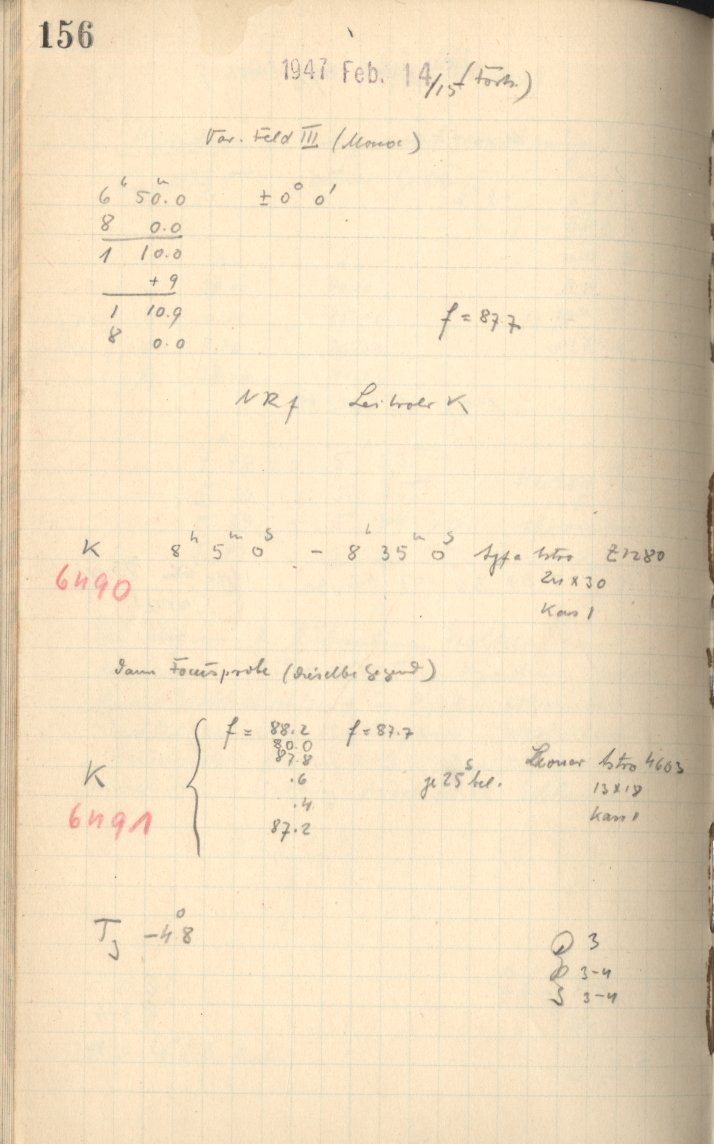 156
1947 Feb. 14/15 (Forts.)
Var. Feld III (Monoc)
6ʰ 50ᵐ.0 ± 0° 0'
8 0.0
1 10.0
+ 9
1 10.9
8 0.0
f = 87.7
NRf K
K 8ʰ 5ᵐ 0ˢ - 8ʰ 35ᵐ 0ˢ Agfa Astro Z1280
6490 24 x 30
Kass 1
Dann Focusprobe (dieselbe Gegend)
f = 88.2 f = 87.7
88.0
87.8
K .6 je 25ˢ bel. Astro 4603
6491 .4 13 x 18
87.2 Kass 1
T -4°.8
3
3-4
3-4